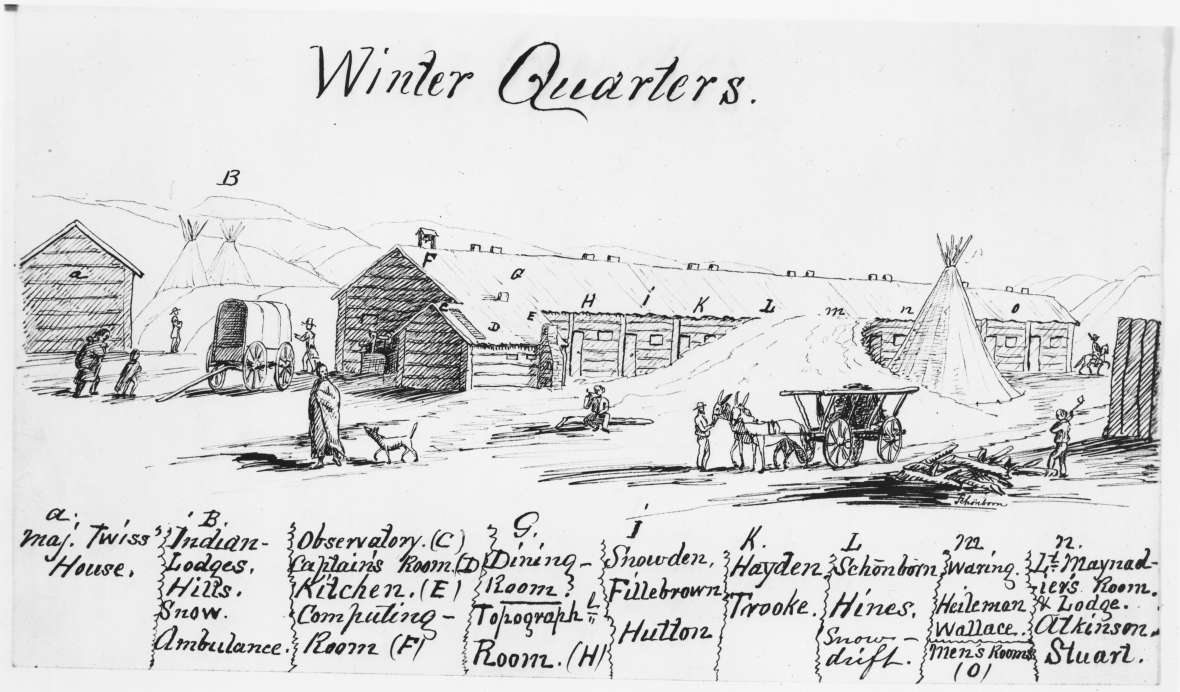 Winter Quarters.
B
a
F
G
C
D
E
H
i
K
L
m
n
O
Schönborn
a.
Maj. Twiss'
House.
B.
Indian-
Lodges.
Hills.
Snow.
Ambulance.
Observatory. (C)
Captain's Room. (D)
Kitchen. (E)
Computing-
Room (F)
G.
Dining-
Room.
Topograph'l
Room. (H)
I
Snowden,
Fillebrown
Hutton
K.
Hayden
Trooke.
L
Schönborn
Hines.
Snow-
drift.
m.
Waring.
Heileman
Wallace.
Men's Rooms
(O)
n.
Lt. Maynad-
ier's Room.
& Lodge.
Atkinson.
Stuart.